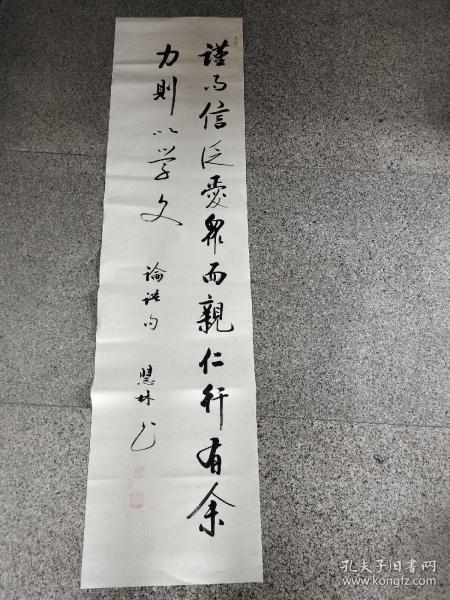 謹而信泛愛眾而親仁行有余
力則以学文
論語句
慧林书
孔夫子旧书网
www.kongfz.com